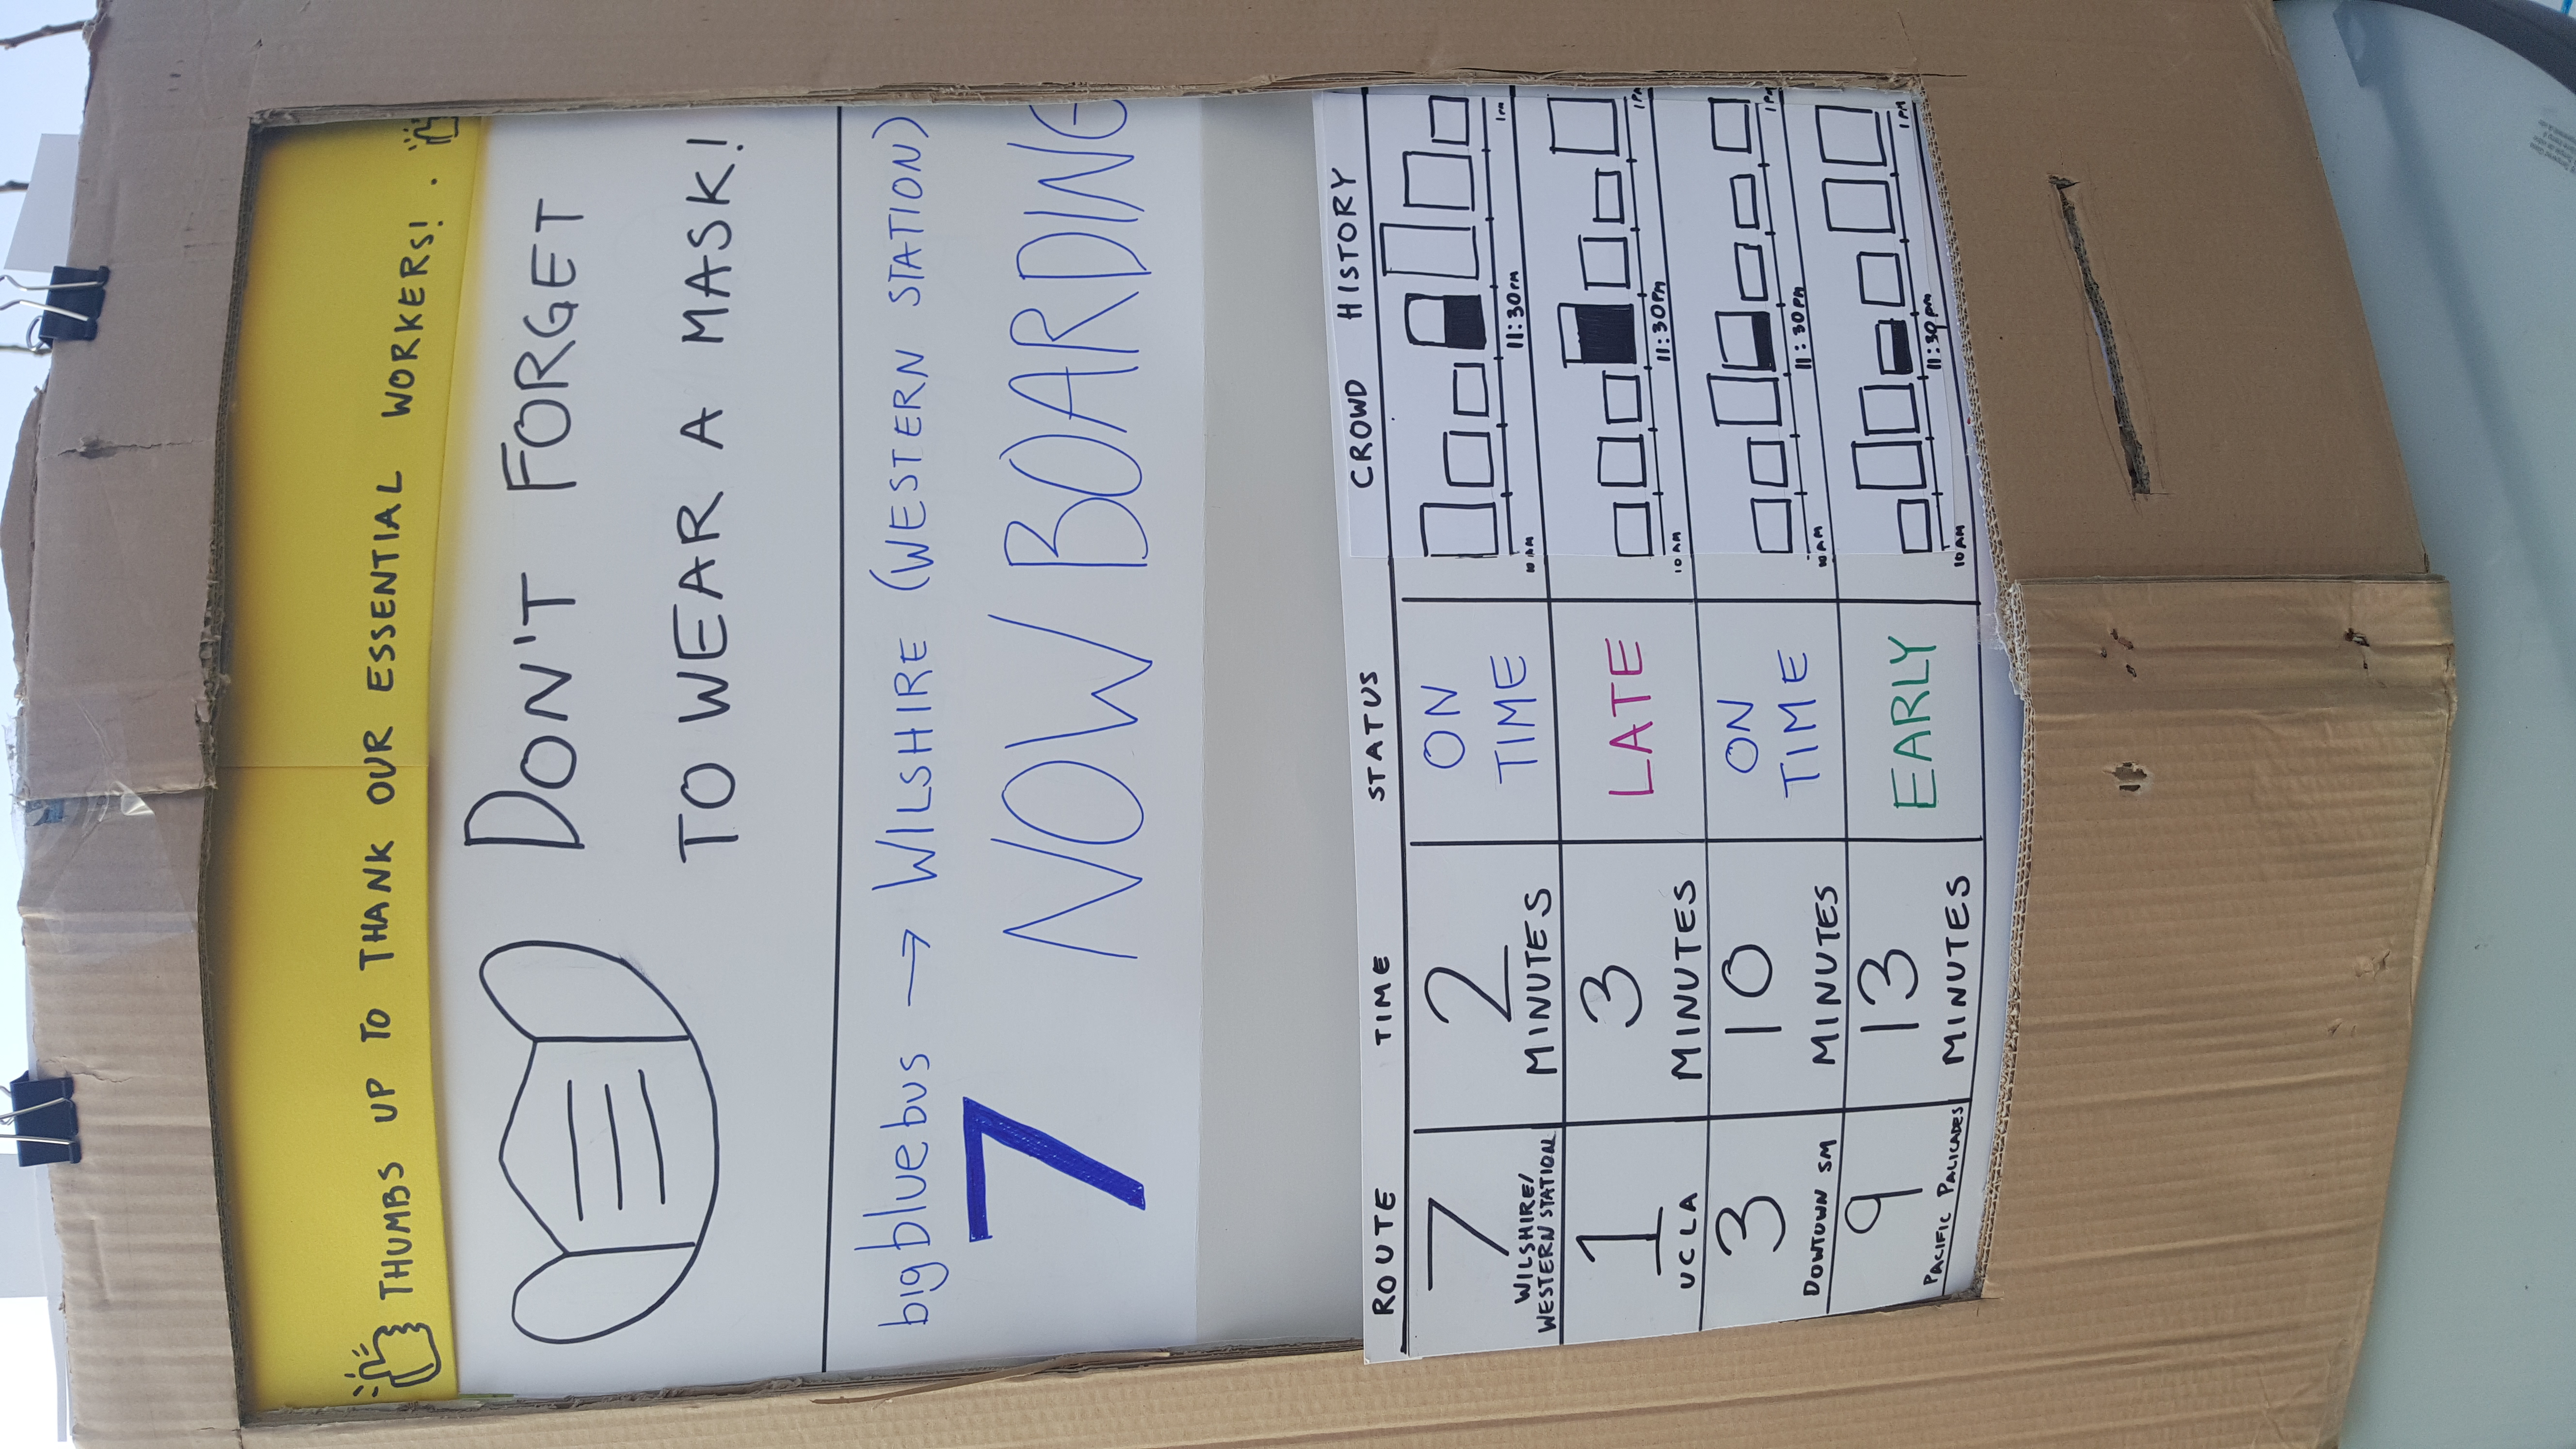 THUMBS UP TO THANK OUR ESSENTIAL WORKERS! .
DON'T FORGET
TO WEAR A MASK!
big blue bus → WILSHIRE (WESTERN STATION)
7 NOW BOARDING
ROUTE TIME STATUS CROWD HISTORY
7
WILSHIRE/
WESTERN STATION
2
MINUTES
ON
TIME
10 AM 11:30PM 1PM
1
UCLA
3
MINUTES
LATE
10 AM 11:30PM 1PM
3
DOWTOWN SM
10
MINUTES
ON
TIME
10 AM 11:30PM 1PM
9
PACIFIC PALICADES
13
MINUTES
EARLY
10 AM 11:30pm 1PM